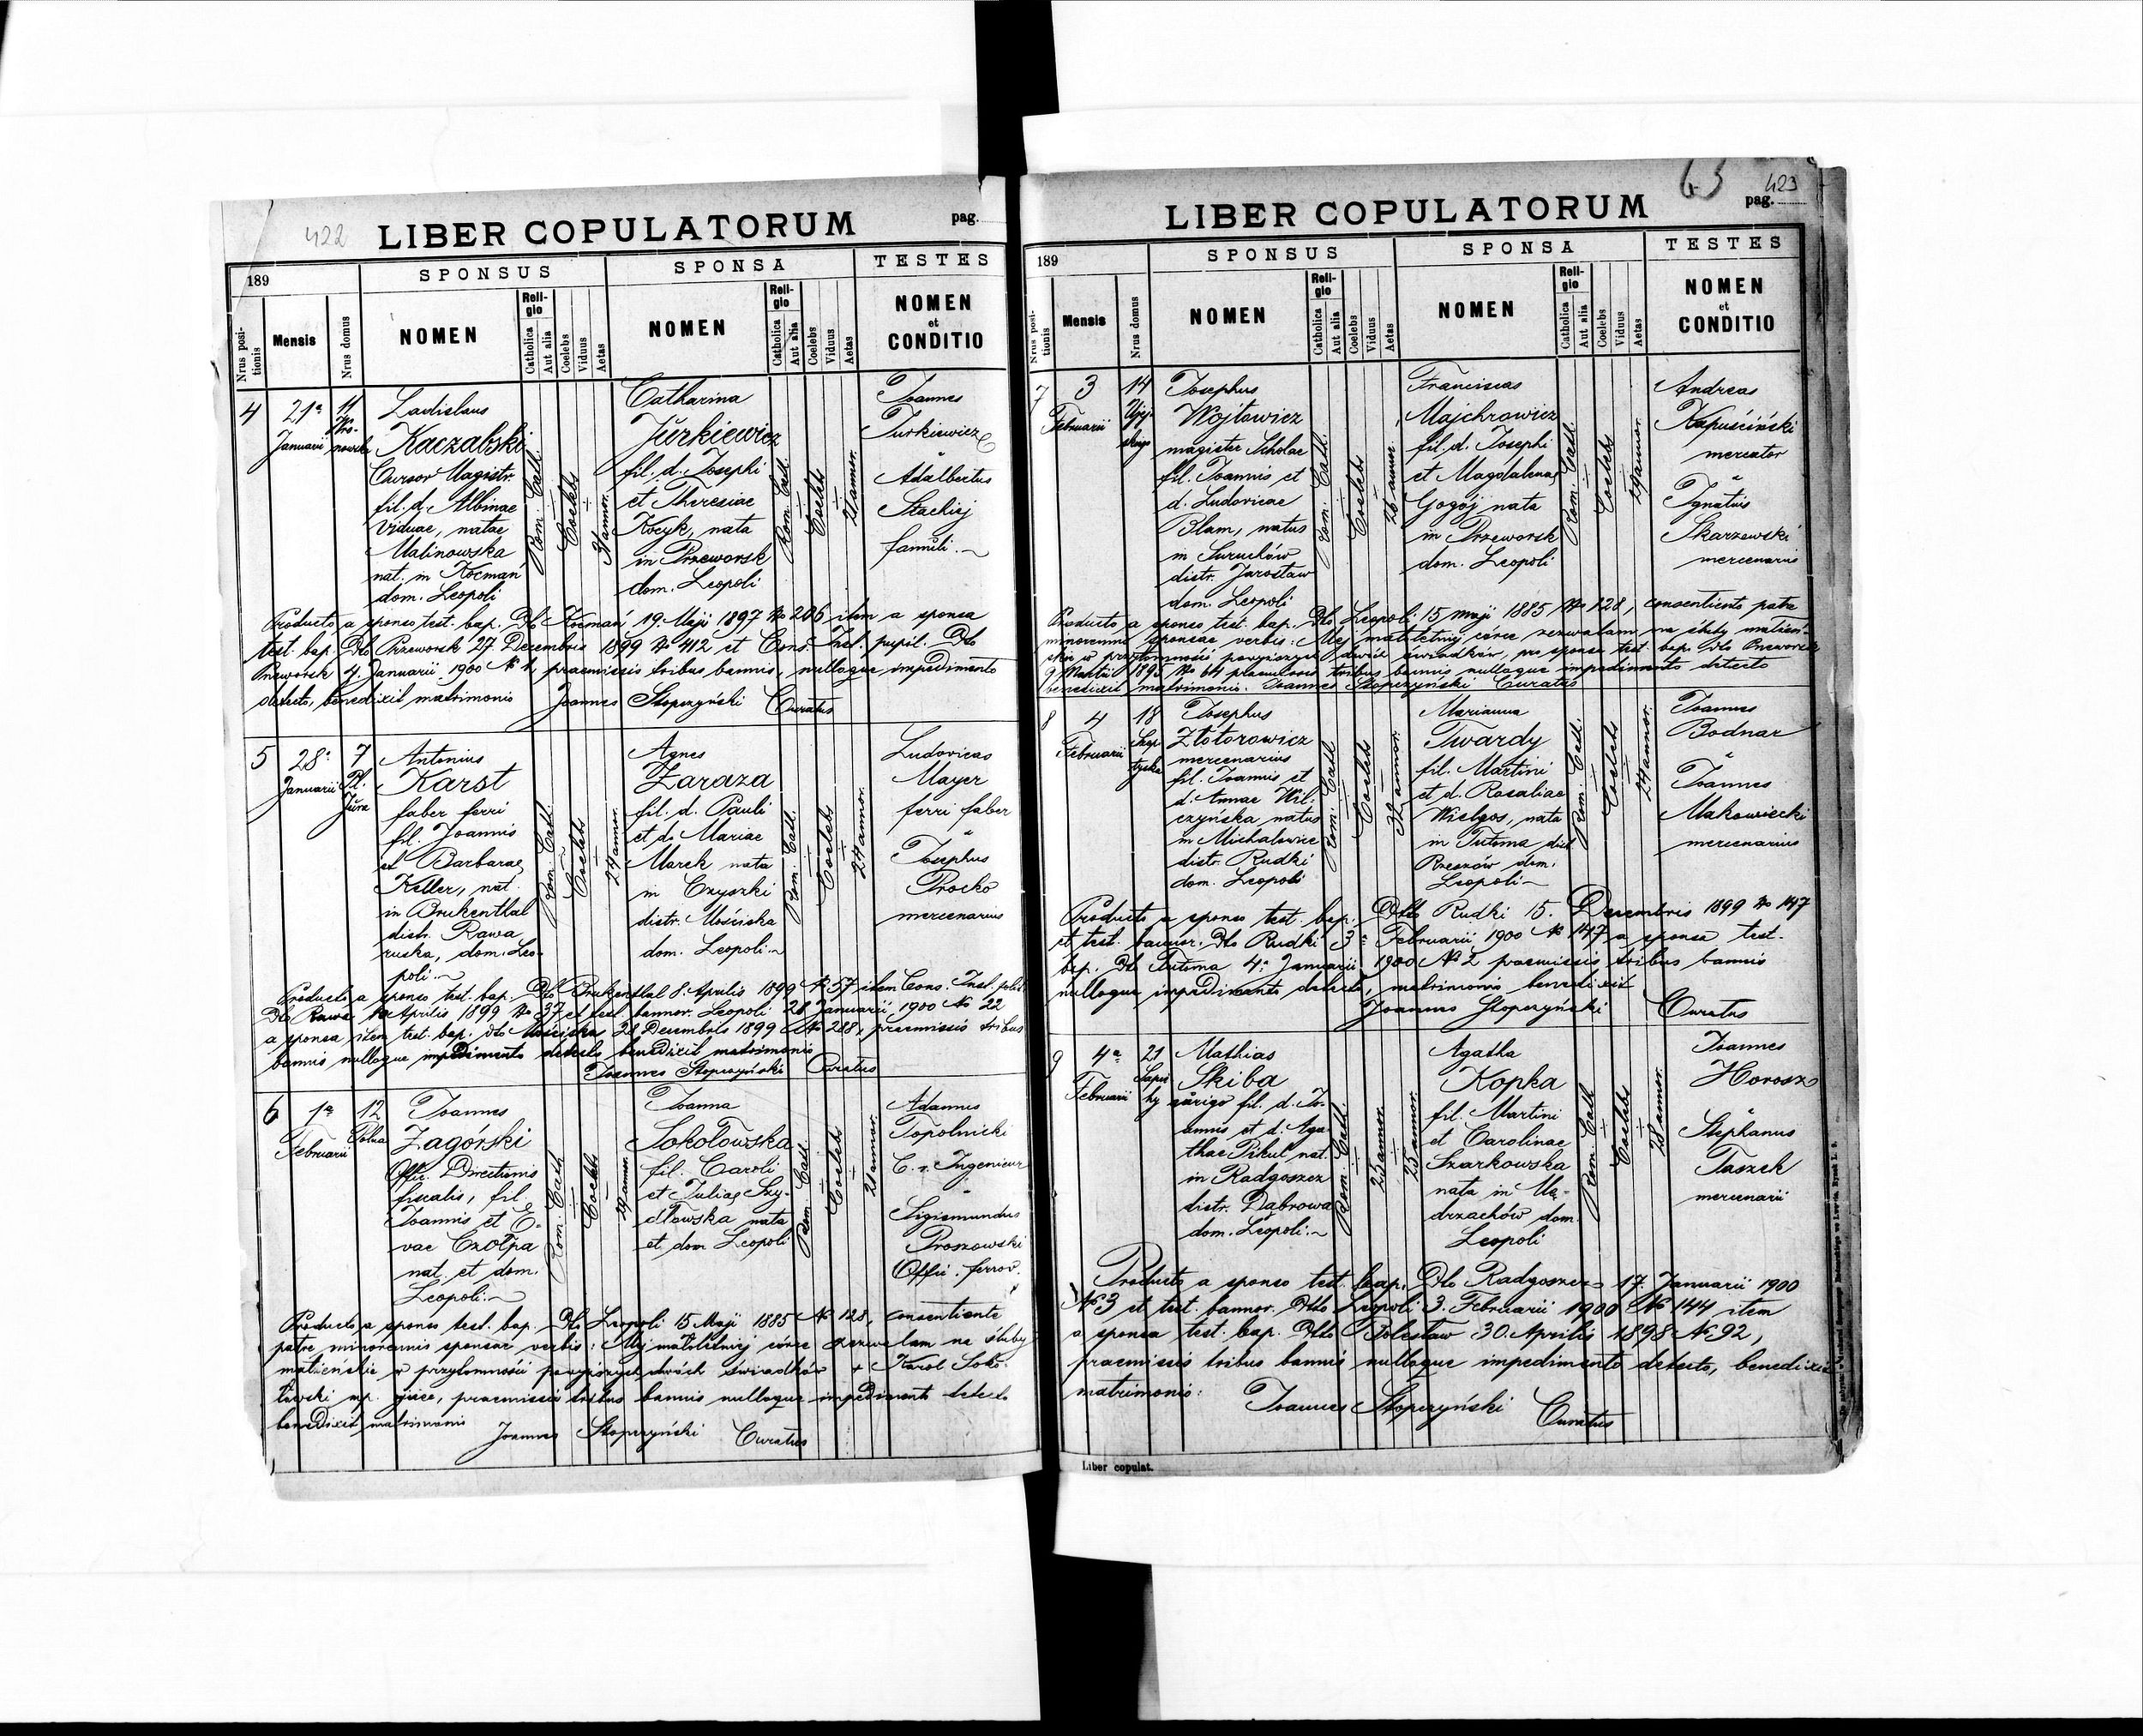 422
LIBER COPULATORUM
pag.
189
SPONSUS
SPONSA
TESTES
Nrus positionis
Mensis
Nrus domus
NOMEN
Religio
Catholica
Aut alia
Coelebs
Viduus
Aetas
NOMEN
Religio
Catholica
Aut alia
Coelebs
Viduus
Aetas
NOMEN
et
CONDITIO
4
21a
Januarii
11
Ladislaus
Kaczabski
Cursor Magistr.
fil. d. Albinae
viduae, natae
Malinowska
nat. in Kocmań
dom. Leopoli
Rom. Cath.
Coelebs
31 annor.
Catharina
Jurkiewicz
fil. d. Josephi
et Theresiae
Kocyk, nata
in Przeworsk
dom. Leopoli
Rom. Cath.
Coelebs
21 annor.
Joannes
Jurkiewicz
Adalbertus
Stackiej
famuli
Producto a sponso test. bap. Dto Kocmań 19. Maji 1897 No 206 item a sponsa
test. bap. Dto Przeworsk 27 Decembris 1899 No 412 et Cons. Inst. pupil. Dto
Przeworsk 4. Januarii 1900 praemissis tribus bannis, nulloque impedimento
detecto, benedixit matrimonio Joannes Stopczyński Curatus
5
28a
Januarii
7
Pl.
Jura
Antonius
Karst
faber ferri
fil. Joannis
et Barbarae
Keller, nat.
in Brukenthal
distr. Rawa
ruska, dom. Leo-
poli
Rom. Cath.
Coelebs
24 annor.
Agnes
Zaraza
fil. d. Pauli
et d. Mariae
Marek nata
in Czyszki
distr. Mościska
dom. Leopoli
Rom. Cath.
Coelebs
24 annor.
Ludovicus
Mayer
ferri faber
Josephus
Procko
mercenarius
Producto a sponso test. bap. Dto Brukenthal 8. Aprilis 1899 No 57 item Cons. Inst. polit.
Dto Rawa Aprilis 1899 No 37 et test. bannor. Leopoli 28 Januarii 1900 No 22
a sponsa item test. bap. dto Mościska 28 Decembris 1899 No 288, praemissis tribus
bannis nulloque impedimento detecto benedixit matrimonio
Joannes Stopczyński Curatus
6
1a
Februarii
12
Polna
Joannes
Zagórski
Offic. Directionis
fiscalis, fil.
Joannis et E-
vae Czołpa
nat. et dom.
Leopoli
Rom. Cath.
Coelebs
29 annor.
Joanna
Sokołowska
fil. Caroli
et Juliae Szy-
dłowska nata
et dom Leopoli
Rom. Cath.
Coelebs
21 annor.
Adamus
Topolnicki
C. r. Ingenieur
Sigismundus
Proszowski
Offic. ferrov.
Producto a sponso test. bap. Dto Leopoli 15 Maji 1885 No 128, consentiente
patre minorennis sponsae verbis: Mej małoletniej córce zezwalam na śluby
małżeńskie w przytomności powyższych dwóch świadków + Karol Soko-
łowski mp. ojciec, praemissis tribus bannis nulloque impedimento detecto
benedixit matrimonio Joannes Stopczyński Curatus
63
423
LIBER COPULATORUM
pag.
189
SPONSUS
SPONSA
TESTES
Nrus positionis
Mensis
Nrus domus
NOMEN
Religio
Catholica
Aut alia
Coelebs
Viduus
Aetas
NOMEN
Religio
Catholica
Aut alia
Coelebs
Viduus
Aetas
NOMEN
et
CONDITIO
7
3
Februarii
14
Ujej-
skiego
Josephus
Wojtowicz
magister Scholae
fil. Joannis et
d. Ludovicae
Blam, natus
in Surochów
distr. Jarosław
dom. Leopoli
Rom. Cath.
Coelebs
26 annor.
Franciscas
Majchrowicz
fil. d. Josephi
et Magdalenae
Gogój nata
in Przeworsk
dom. Leopoli
Rom. Cath.
Coelebs
29 annor.
Andreas
Kapuściński
mercator
Ignatius
Skarzewski
mercenarius
Producto a sponso test. bap. Dto Leopoli 15 maji 1885 No 128, consentiente patre
minorennis sponsae verbis: Mej małoletniej córce zezwalam na śluby małżeń-
skie w przytomności powyższych dwóch świadków, pro sponsa test. bap. Dto Przeworsk
9 Martii 1895 No 64 praemissis tribus bannis nulloque impedimento detecto
benedixit matrimonio. Joannes Stopczyński Curatus
8
4
Februarii
18
Szep-
tycka
Josephus
Złotorowicz
mercenarius
fil. Joannis et
d. Annae Wil-
czyńska natus
in Michałowice
distr. Rudki
dom. Leopoli
Rom. Cath.
Coelebs
32 annor.
Marianna
Twardy
fil. Martini
et d. Rosaliae
Wielgos, nata
in Futoma dist.
Rzeszów dom.
Leopoli
Rom. Cath.
Coelebs
24 annor.
Joannes
Bodnar
Joannes
Makowiecki
mercenarius
Producto a sponso test. bap. Dto Rudki 15. Decembris 1899 No 147
et test. bannor. Dto Rudki 3a Februarii 1900 No 147 a sponsa test.
bap. Dto Futoma 4. Januarii 1900 No 2 praemissis tribus bannis
nulloque impedimento detecto, matrimonio benedixit
Joannes Stopczyński Curatus
9
4a
Februarii
21
Sapie
hy
Mathias
Skiba
auriga fil. d. Jo-
annis et d. Aga-
thae Pikul nat.
in Radgoszcz
distr. Dąbrowa
dom. Leopoli
Rom. Cath.
25 annor.
25 annor.
Agatha
Kopka
fil. Martini
et Carolinae
Szarkowska
nata in Mę-
drzechów dom.
Leopoli
Rom. Cath.
Coelebs
28 annor.
Joannes
Horosz
Stephanus
Taszek
mercenarii
Producto a sponso test. bap. Dto Radgoszcz 17. Januarii 1900
No 3 et test. bannor. Dto Leopoli 3. Februarii 1900 No 144 item
a sponsa test. bap. Dto Bolesław 30. Aprilis 1898 No 92,
praemissis tribus bannis nulloque impedimento detecto, benedixit
matrimonio: Joannes Stopczyński Curatus
Liber copulat.